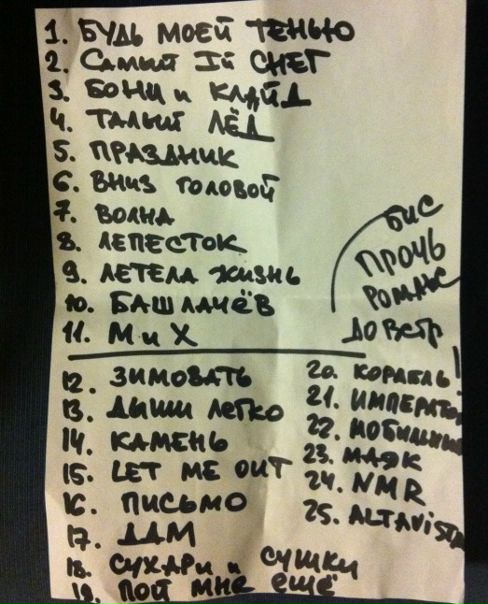 1. БУДЬ МОЕЙ ТЕНЬЮ
2. САМЫЙ Iй СНЕГ
3. БОНИ и КЛАЙД
4. ТАЛЫЙ ЛЁД
5. ПРАЗДНИК
6. ВНИЗ ГОЛОВОЙ
7. ВОЛНА
8. ЛЕПЕСТОК
9. ЛЕТЕЛА ЖИЗНЬ
10. БАШЛАЧЁВ
11. М и Х
БИС
ПРОЧЬ
РОМАНС
ДО ВСТР
12. ЗИМОВАТЬ
13. ДЫШИ ЛЕГКО
14. КАМЕНЬ
15. LET ME OUT
16. ПИСЬМО
17. ДДМ
18. СУХАРИ и СУШКИ
19. ПОЙ МНЕ ЕЩЁ
20. КОРАБЛЬ
21. ИМПЕРАТО
22. МОБИЛЬНЫ
23. МАЯК
24. NMR
25. ALTAVISTA